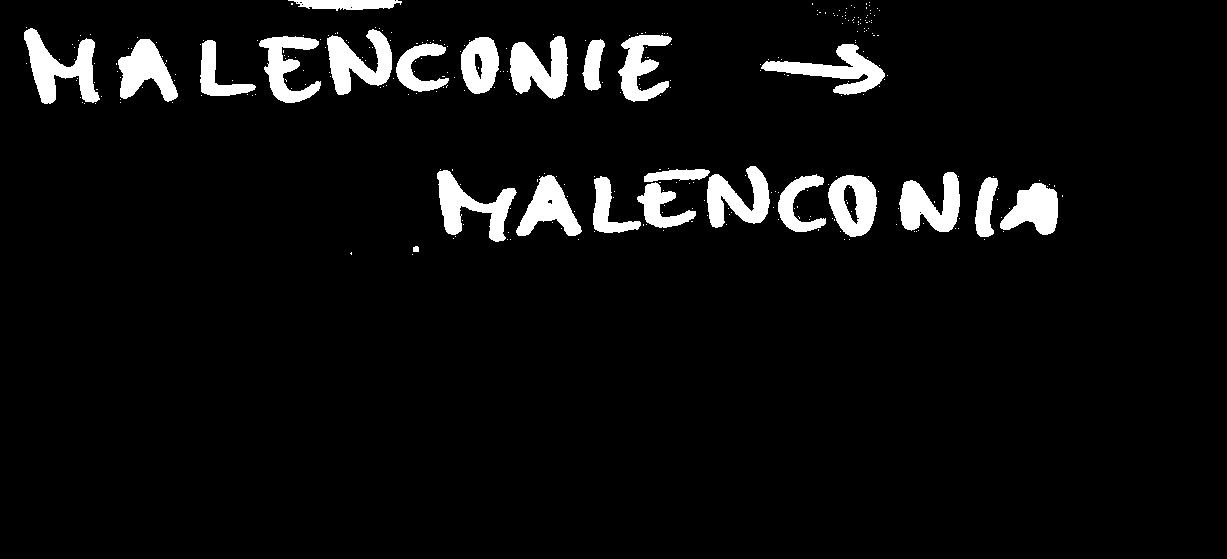 MALENCONIE →
MALENCONIA